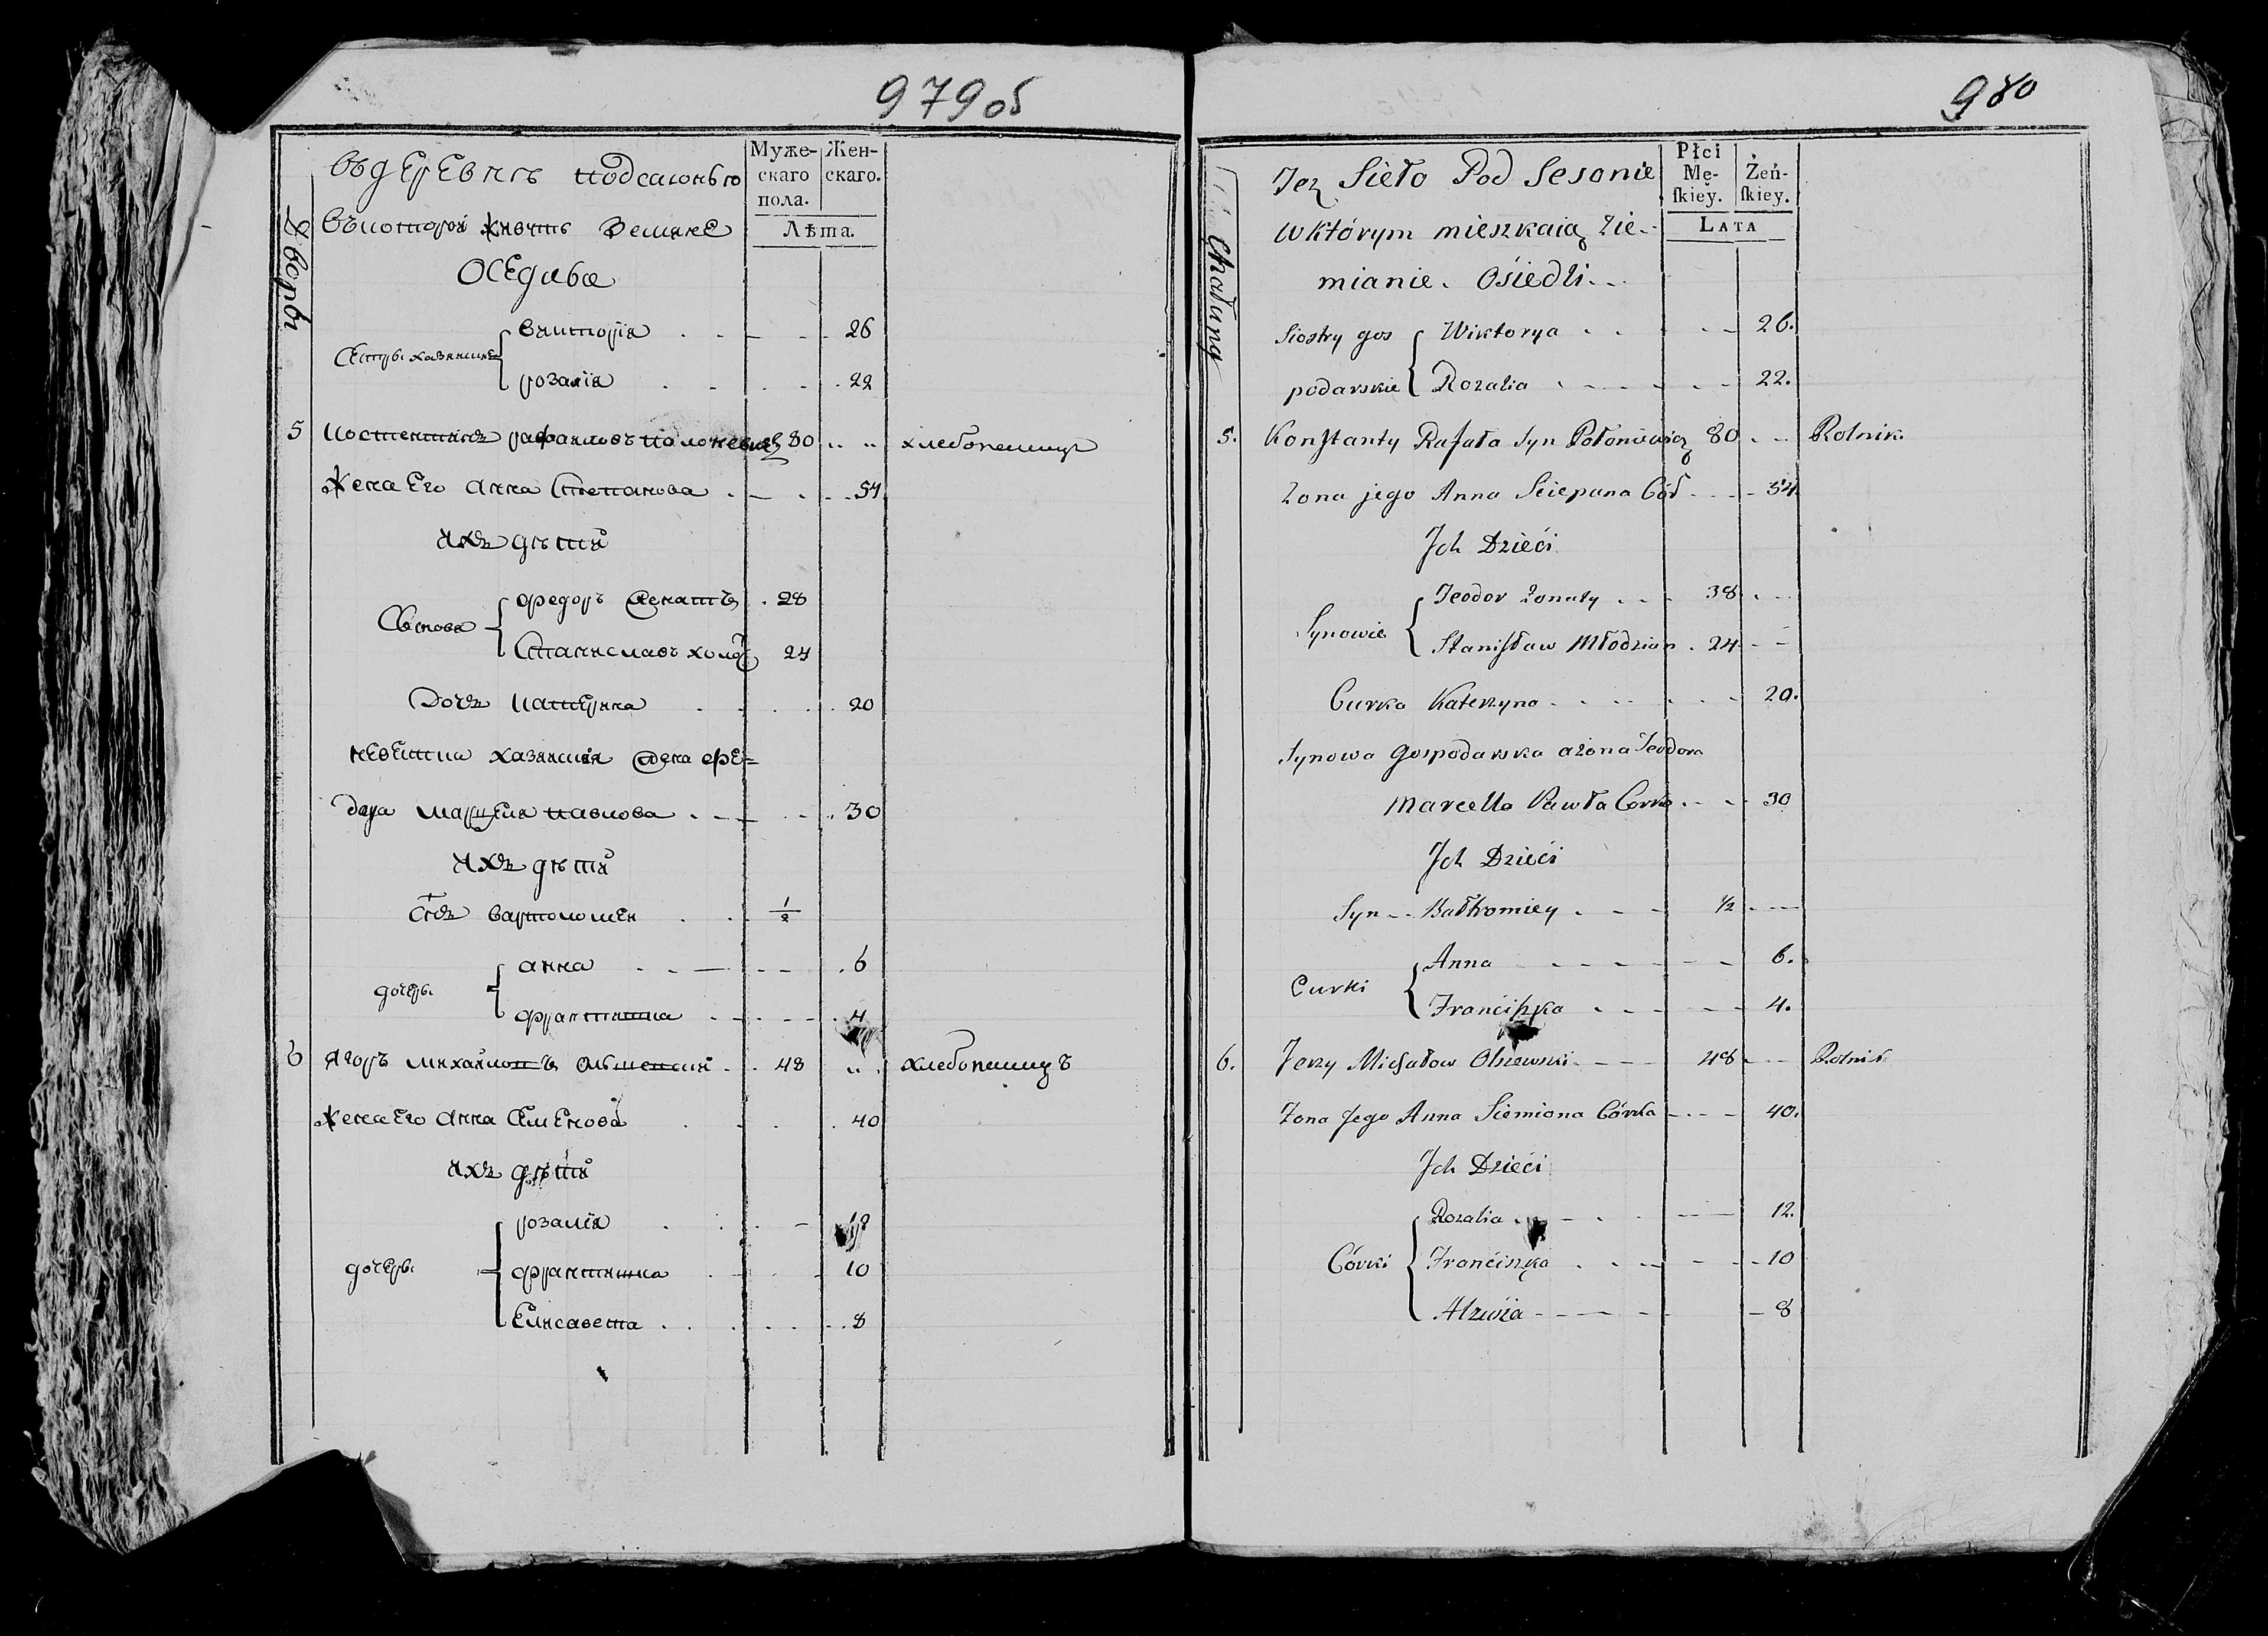 979об
Дворы
Въ деревнѣ подсаюнью
Муже-
скаго
пола.
Жен-
скаго.
Лѣта.
въ которой живутъ земяне
оседлые
Сестры хазяиские
виктория 26
розалія 22
5 Костентинъ рафаиловъ полоневичъ 80 хлебопашицъ
жена Его анна Степанова 54
ихъ дѣти
Сыновя
федоръ женатъ 28
Станиславъ холост 24
Дочь катерина 20
невестка хазяиская жена фе=
дора марцеля павлова 30
ихъ дѣти
Сынъ вартоломеи 1/2
дочеры
анна 6
францишка 4
6 Ягоръ михаиловъ олшевскии 48 хлебопашицъ
жена Его анна Семенова 40
ихъ дѣти
дочеры
розалія 12
францишка 10
Елисавета 8
980
Chałupy
Jez Sieło Pod Sesonie
Płci
Mę-
ſkiey.
Żeń-
ſkiey.
LATA
w którym mieszkaią Zie-
mianie. Osiedli
Siostry gos
podarskie
Wiktorya 26.
Rozalia 22.
5. Konstanty Rafała Syn Połoniewicz 80 Rolnik
Zona jego Anna Sciepana Cór 54
Jch Dzieći
Synowie
Teodor Zonaty 38
Stanisław Młodzian 24
Curka Katerzyna 20.
Synowa Gospodarska a zona Teodora
Marcella Pawła Corka 30
Jch Dzieći
Syn Bałtromiey 1/2
Curki
Anna 6.
Franćiszka 4.
6. Jerzy Michałow Olszewski 48 Rolnik
Zona Jego Anna Siemiona Córka 40.
Jch Dzieći
Córki
Rozalia 12.
Franćiszka 10
Alzwia 8